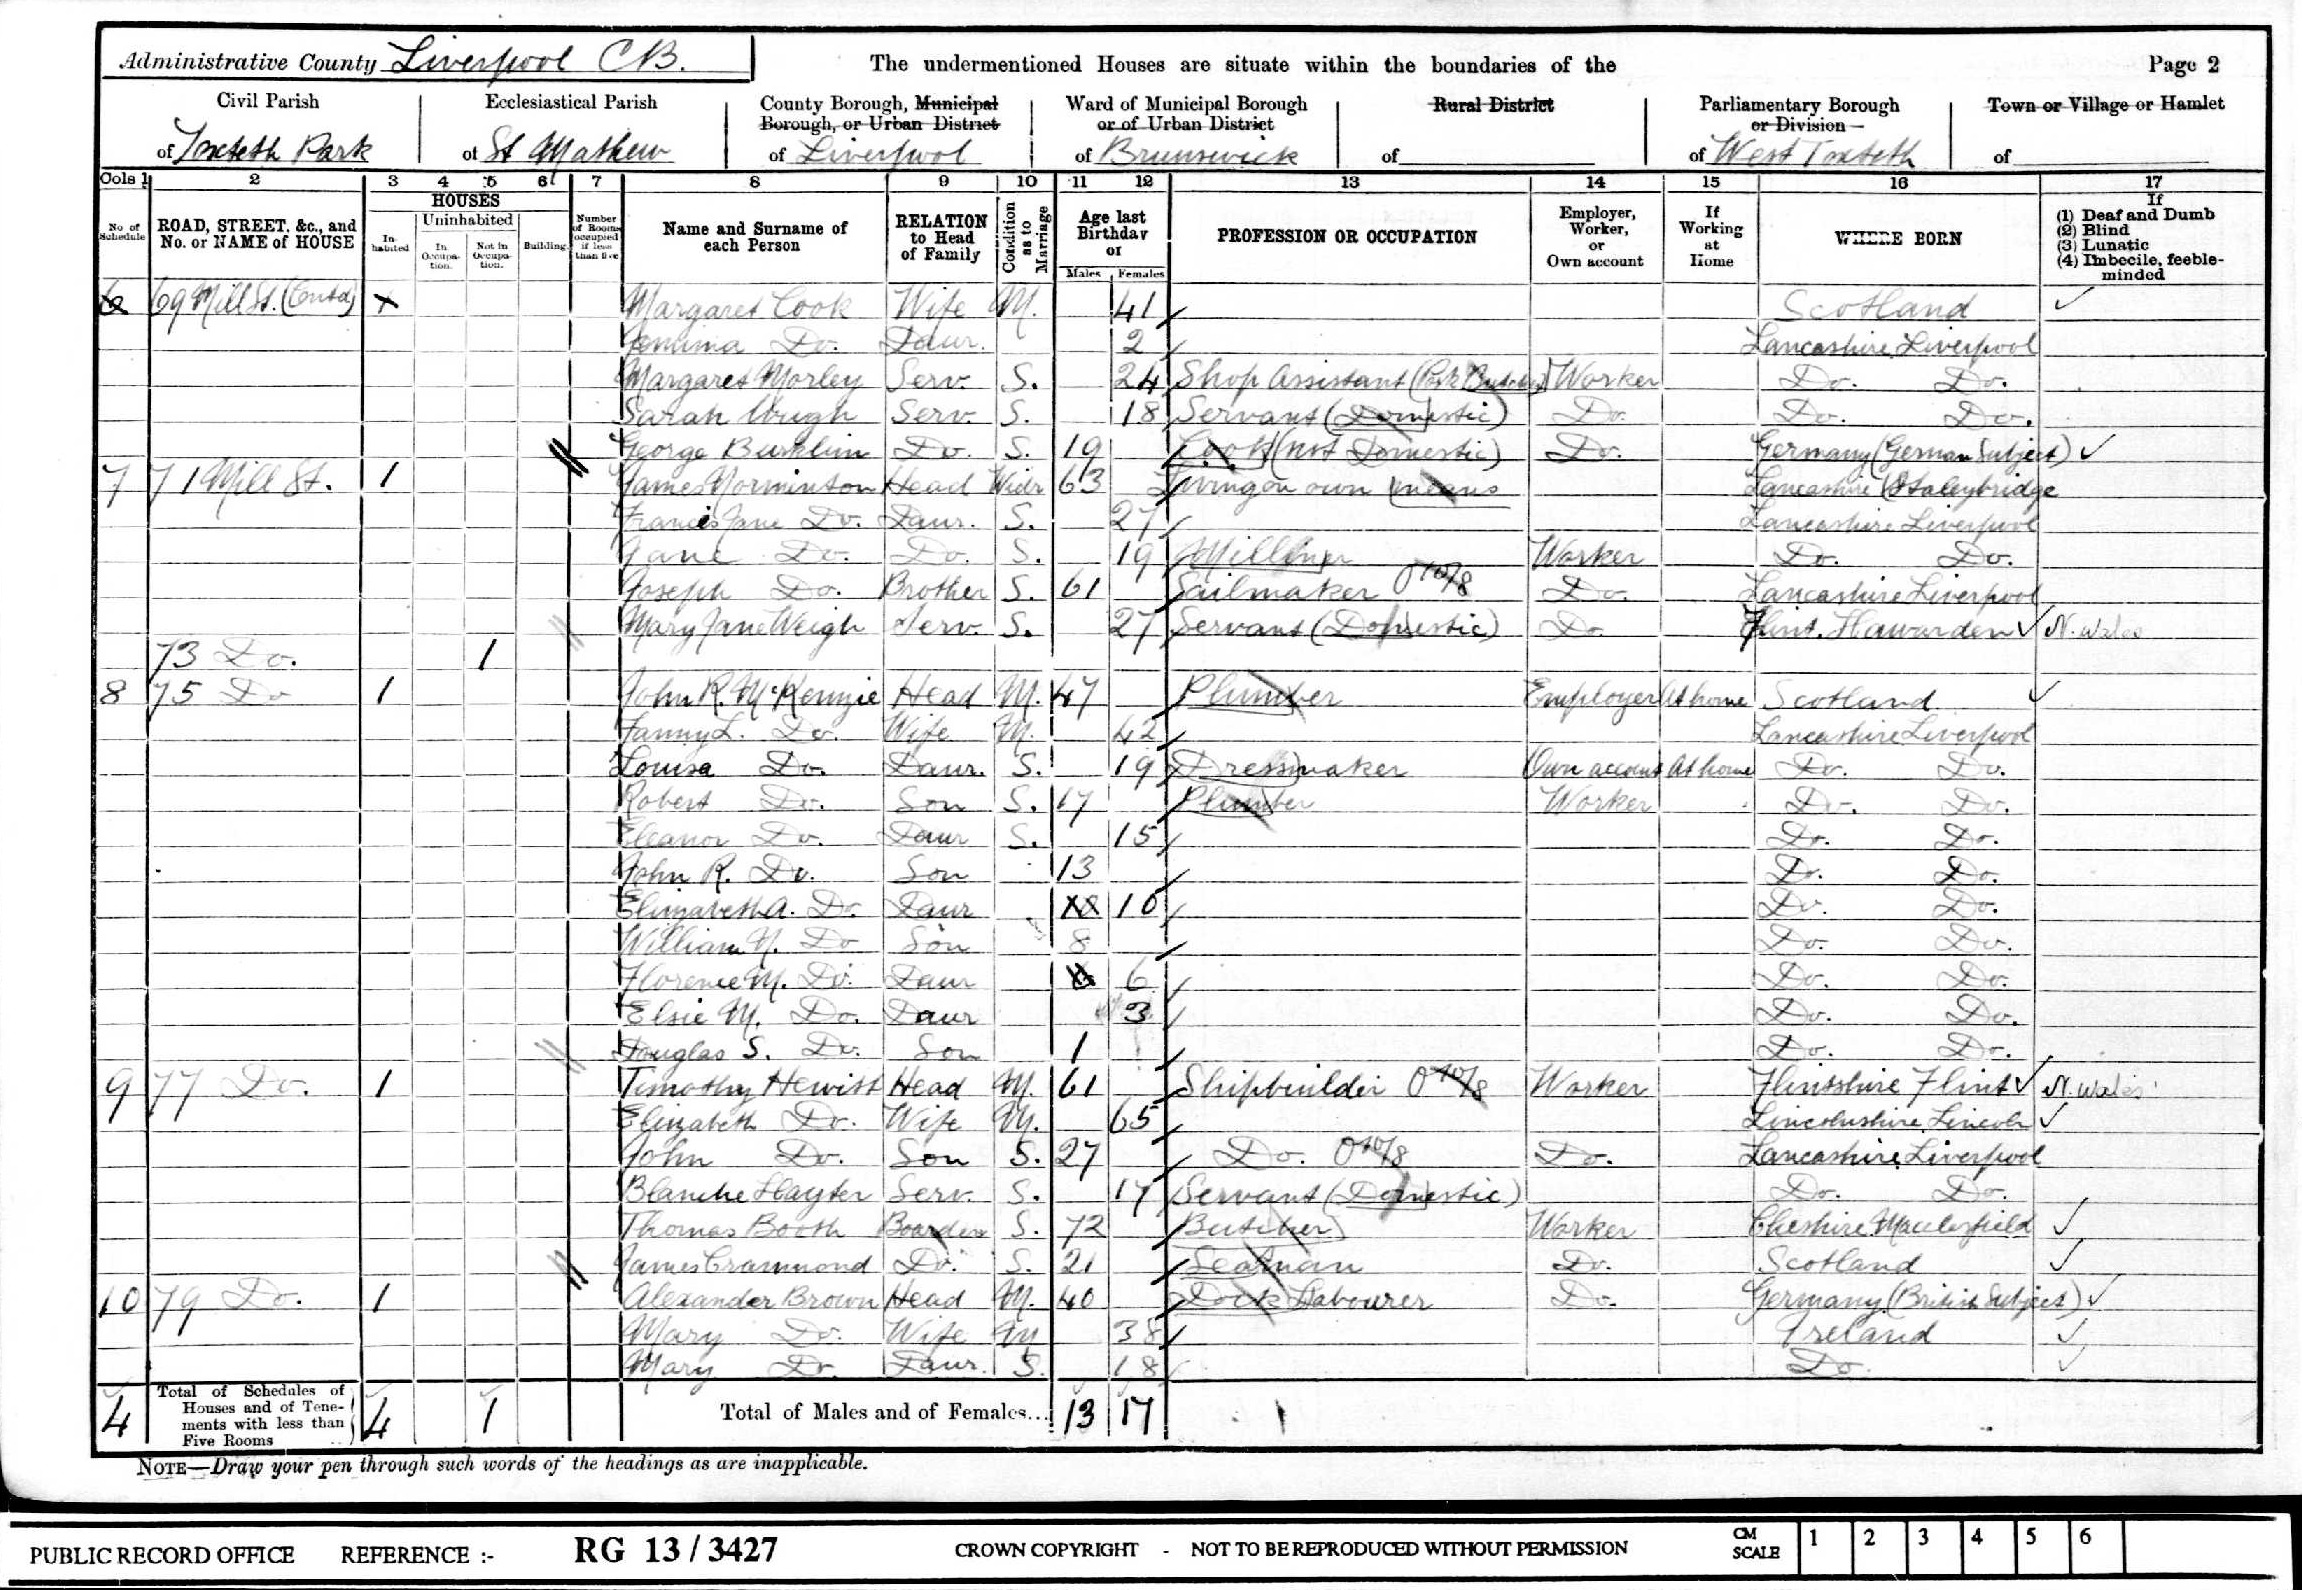 Administrative County Liverpool CB. The undermentioned Houses are situate within the boundaries of the Page 2
Civil Parish Ecclesiastical Parish County Borough, Municipal Ward of Municipal Borough Rural District Parliamentary Borough Town or Village or Hamlet
Borough, or Urban District or of Urban District or Division
of Toxteth Park of St Mathew of Liverpool of Brunswick of of West Toxteth of
Cols 1 2 3 4 5 6 7 8 9 10 11 12 13 14 15 16 17
No of Schedule ROAD, STREET, &c., and No. or NAME of HOUSE HOUSES Inhabited Uninhabited In Occupation. Not in Occupation. Building. Number of Rooms occupied if less than five Name and Surname of each Person RELATION to Head of Family Condition as to Marriage Age last Birthday of Males Females PROFESSION OR OCCUPATION Employer, Worker, or Own account If Working at Home WHERE BORN If (1) Deaf and Dumb (2) Blind (3) Lunatic (4) Imbecile, feeble-minded
6 69 Mill St. (Contd) x Margaret Cook Wife M. 41 Scotland
Jemima Do. Daur. 2 Lancashire Liverpool
Margaret Morley Serv. S. 24 Shop Assistant (Pork Butcher) Worker Do. Do.
Sarah Serv. S. 18 Servant (Domestic) Do. Do. Do.
George Do. S. 19 Cook (not Domestic) Do. Germany (German Subject)
7 71 Mill St. 1 James Norminton Head Widr 63 Living on own means Lancashire Staleybridge
Francis Jane Do. Daur. S. 27 Lancashire Liverpool
Jane Do. Do. S. 19 Milliner Worker Do. Do.
Joseph Do. Brother S. 61 Sailmaker Do. Lancashire Liverpool
Mary Jane Weigh Serv. S. 27 Servant (Domestic) Do. Flint. Hawarden N. Wales
73 Do. 1
8 75 Do 1 John R. McKenzie Head M. 47 Plumber Employer At home Scotland
Fanny L. Do. Wife M. 42 Lancashire Liverpool
Louisa Do. Daur. S. 19 Dressmaker Own account At home Do. Do.
Robert Do. Son S. 17 Plumber Worker Do. Do.
Eleanor Do. Daur S. 15 Do. Do.
John R. Do. Son 13 Do. Do.
Elizabeth A. Do. Daur 10 Do. Do.
William N. Do Son 8 Do. Do.
Florence M. Do. Daur 6 Do. Do.
Elsie M. Do. Daur 3 Do. Do.
Douglas S. Do. Son 1 Do. Do.
9 77 Do. 1 Timothy Hewitt Head M. 61 Shipbuilder Worker Flintshire Flint N. Wales
Elizabeth Do. Wife M. 65 Lincolnshire Lincoln
John Do. Son S. 27 Do. Do. Lancashire Liverpool
Blanche Hayter Serv. S. 17 Servant (Domestic) Do. Do.
Thomas Booth Boarder S. 72 Butcher Worker Cheshire Macclesfield
James Crammond Do. S. 21 Seaman Do. Scotland
10 79 Do. 1 Alexander Brown Head M. 40 Dock Labourer Do. Germany (British Subject)
Mary Do. Wife M 38 Ireland
Mary Do. Daur. S. 18 Do.
4 Total of Schedules of Houses and of Tenements with less than Five Rooms 4 1 Total of Males and of Females... 13 17
NOTE—Draw your pen through such words of the headings as are inapplicable.
PUBLIC RECORD OFFICE REFERENCE :- RG 13 / 3427 CROWN COPYRIGHT - NOT TO BE REPRODUCED WITHOUT PERMISSION CM SCALE 1 2 3 4 5 6